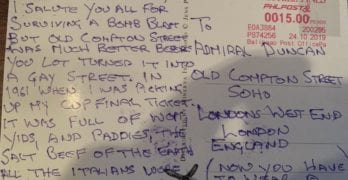 I SALUTE YOU ALL FOR
SURVIVING A BOMB BLAST
BUT OLD COMPTON STREET
WAS MUCH BETTER BEFORE
YOU LOT TURNED IT INTO
A GAY STREET. IN
1961 WHEN I WAS PICKING
UP MY CUP FINAL TICKET.
IT WAS FULL OF WOPS
YIDS, AND PADDIES, THE
SALT BEEF OF THE EARTH
ALL THE ITALIANS WORE
0015.00
200295
PS74256 24 10 2019
Post Office
TO
ADMIRAL DUNCAN
OLD COMPTON STREET
SOHO
LONDONS WEST END
LONDON
ENGLAND
(NOW YOU HAVE